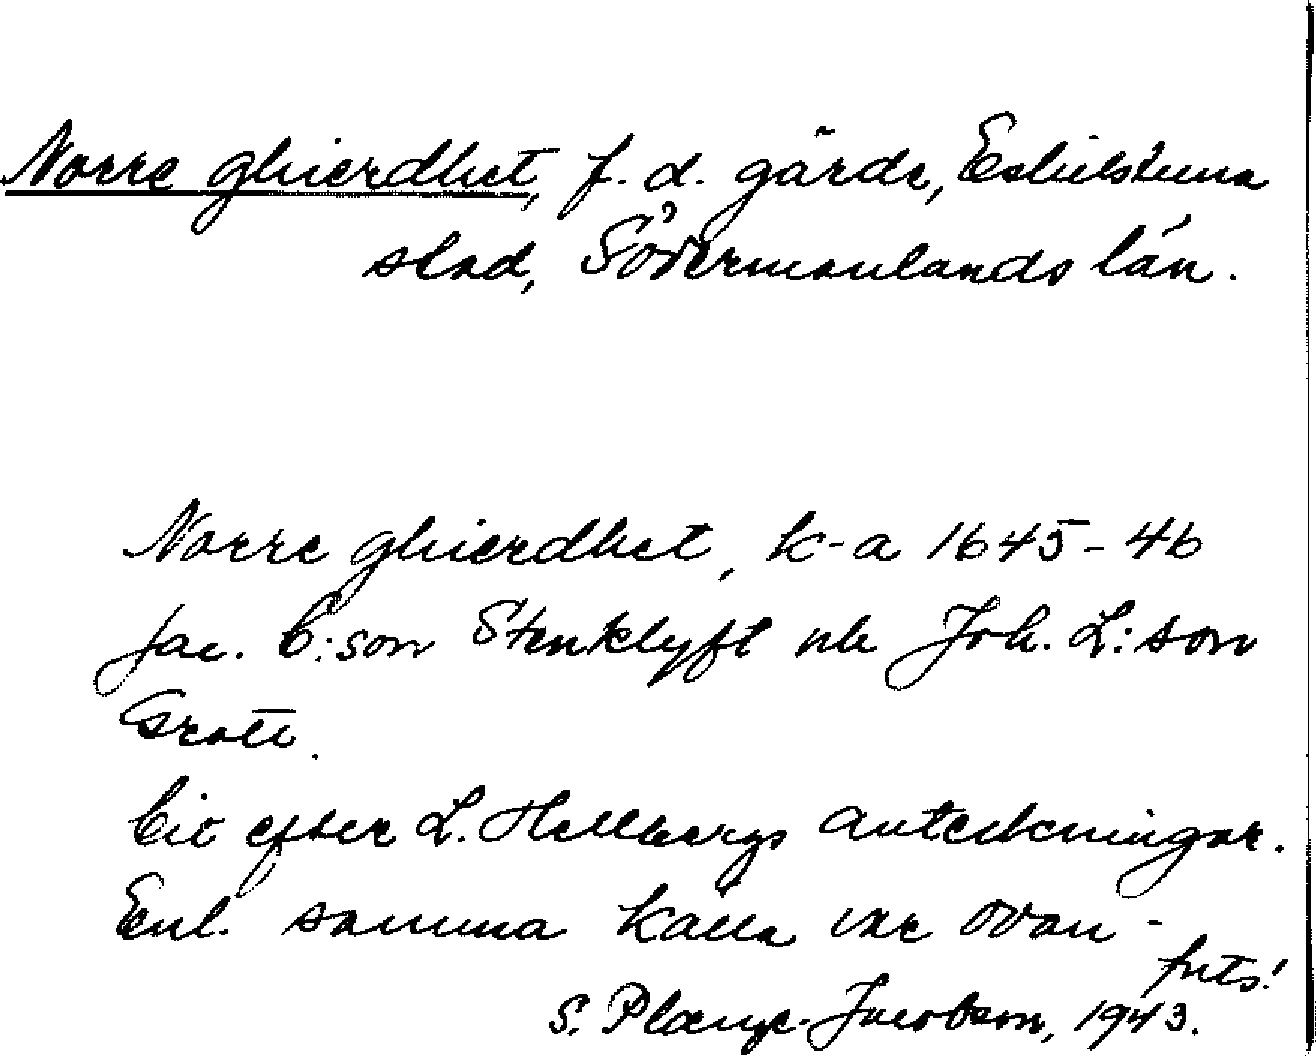 Norre ghierdhet, f. d. gärde, Eskilstuna
stad, Södermanlands län.
Norre ghierdhet, k-a 1645-46
Jac. C:son Stenklyft nb Joh. L:son
Grott.
Cit efter L. Hellbergs anteckningar.
Enl. samma källa var ovan-
forts!
S. Plænge-Jacobson, 1943.